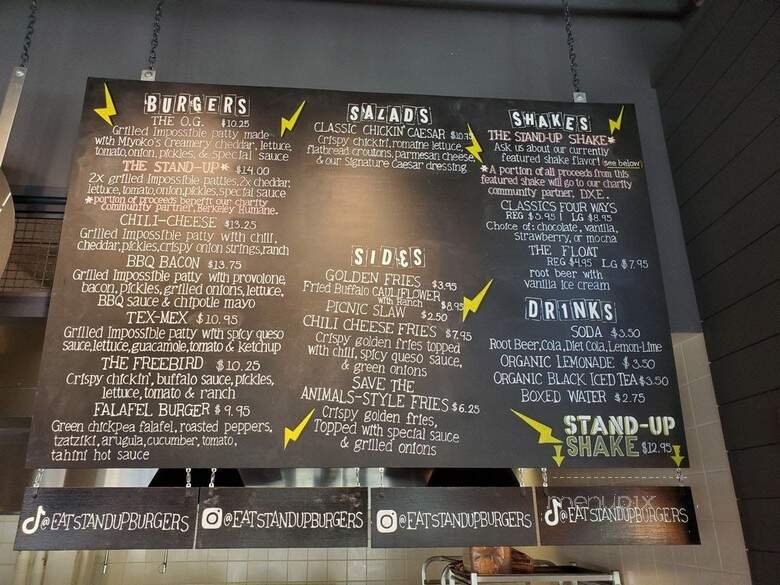 BURGERS
THE O.G. $10.25
Grilled Impossible patty made
with Miyoko's Creamery cheddar, lettuce,
tomato, onion, pickles, & special sauce
THE STAND-UP* $14.00
2x grilled Impossible patties, 2x cheddar,
lettuce, tomato, onion, pickles, special sauce
*portion of proceeds benefit our charity
community partner, Berkeley Humane.
CHILI-CHEESE $13.25
Grilled Impossible patty with chili,
cheddar, pickles, crispy onion strings, ranch
BBQ BACON $13.75
Grilled Impossible patty with provolone,
bacon, pickles, grilled onions, lettuce,
BBQ sauce & chipotle mayo
TEX-MEX $10.95
Grilled Impossible patty with spicy queso
sauce, lettuce, guacamole, tomato & ketchup
THE FREEBIRD $10.25
Crispy chickin', buffalo sauce, pickles,
lettuce, tomato & ranch
FALAFEL BURGER $9.95
Green chickpea falafel, roasted peppers,
tzatziki, arugula, cucumber, tomato,
tahini hot sauce
SALADS
CLASSIC CHICKIN' CAESAR
Crispy chickin', romaine lettuce,
flatbread croutons, parmesan cheese,
& our signature Caesar dressing
SIDES
GOLDEN FRIES $3.95
Fried Buffalo CAULIFLOWER
with Ranch $8.95
PICNIC SLAW $2.50
CHILI CHEESE FRIES $7.95
Crispy golden fries topped
with chili, spicy queso sauce,
& green onions
SAVE THE
ANIMALS-STYLE FRIES $6.25
Crispy golden fries,
Topped with special sauce
& grilled onions
SHAKES
THE STAND-UP SHAKE*
Ask us about our currently
featured shake flavor! (see below)
*A portion of all proceeds from this
featured shake will go to our charity
community partner, DXE.
CLASSICS FOUR WAYS
REG $5.95 | LG $8.95
Choice of: chocolate, vanilla,
strawberry, or mocha
THE FLOAT
REG $4.95 LG $7.95
root beer with
vanilla ice cream
DRINKS
SODA $3.50
Root Beer, Cola, Diet Cola, Lemon-Lime
ORGANIC LEMONADE $3.50
ORGANIC BLACK ICED TEA $3.50
BOXED WATER $2.75
STAND-UP
SHAKE $12.95
@EATSTANDUPBURGERS
@EATSTANDUPBURGERS
@EATSTANDUPBURGERS
@EATSTANDUPBURGERS
menupix